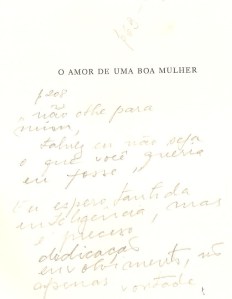 O AMOR DE UMA BOA MULHER
p 208
"não olhe para
mim,
talvez eu não seja
o que você queria
eu fosse"
Eu espero tanto da
inteligencia, mas
é preciso
dedicaçao
envolvimento, não
apenas vontade